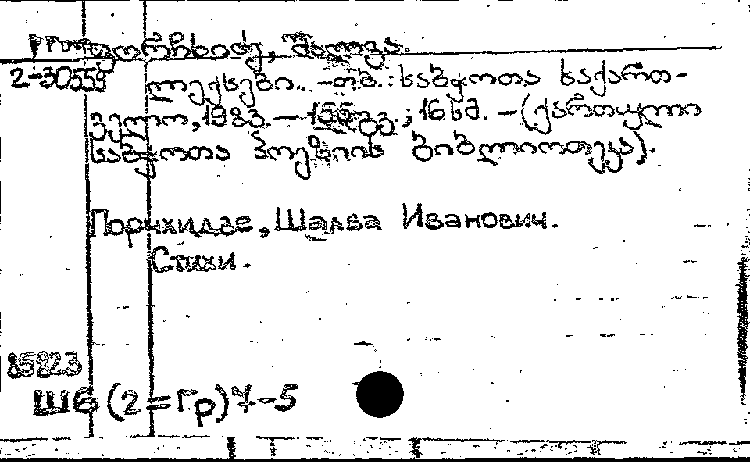 ფორჩხიძე, შალვა.
2-30559
ლექსები. -თბ.: საბჭოთა საქართ-
ველო, 1983. - 155 გვ.; 16 სმ. - (ქართული
საბჭოთა პოეზიის ბიბლიოთეკა).
Порчхидзе, Шалва Иванович.
Стихи.
85823
Ш6(2=Гр)7-5